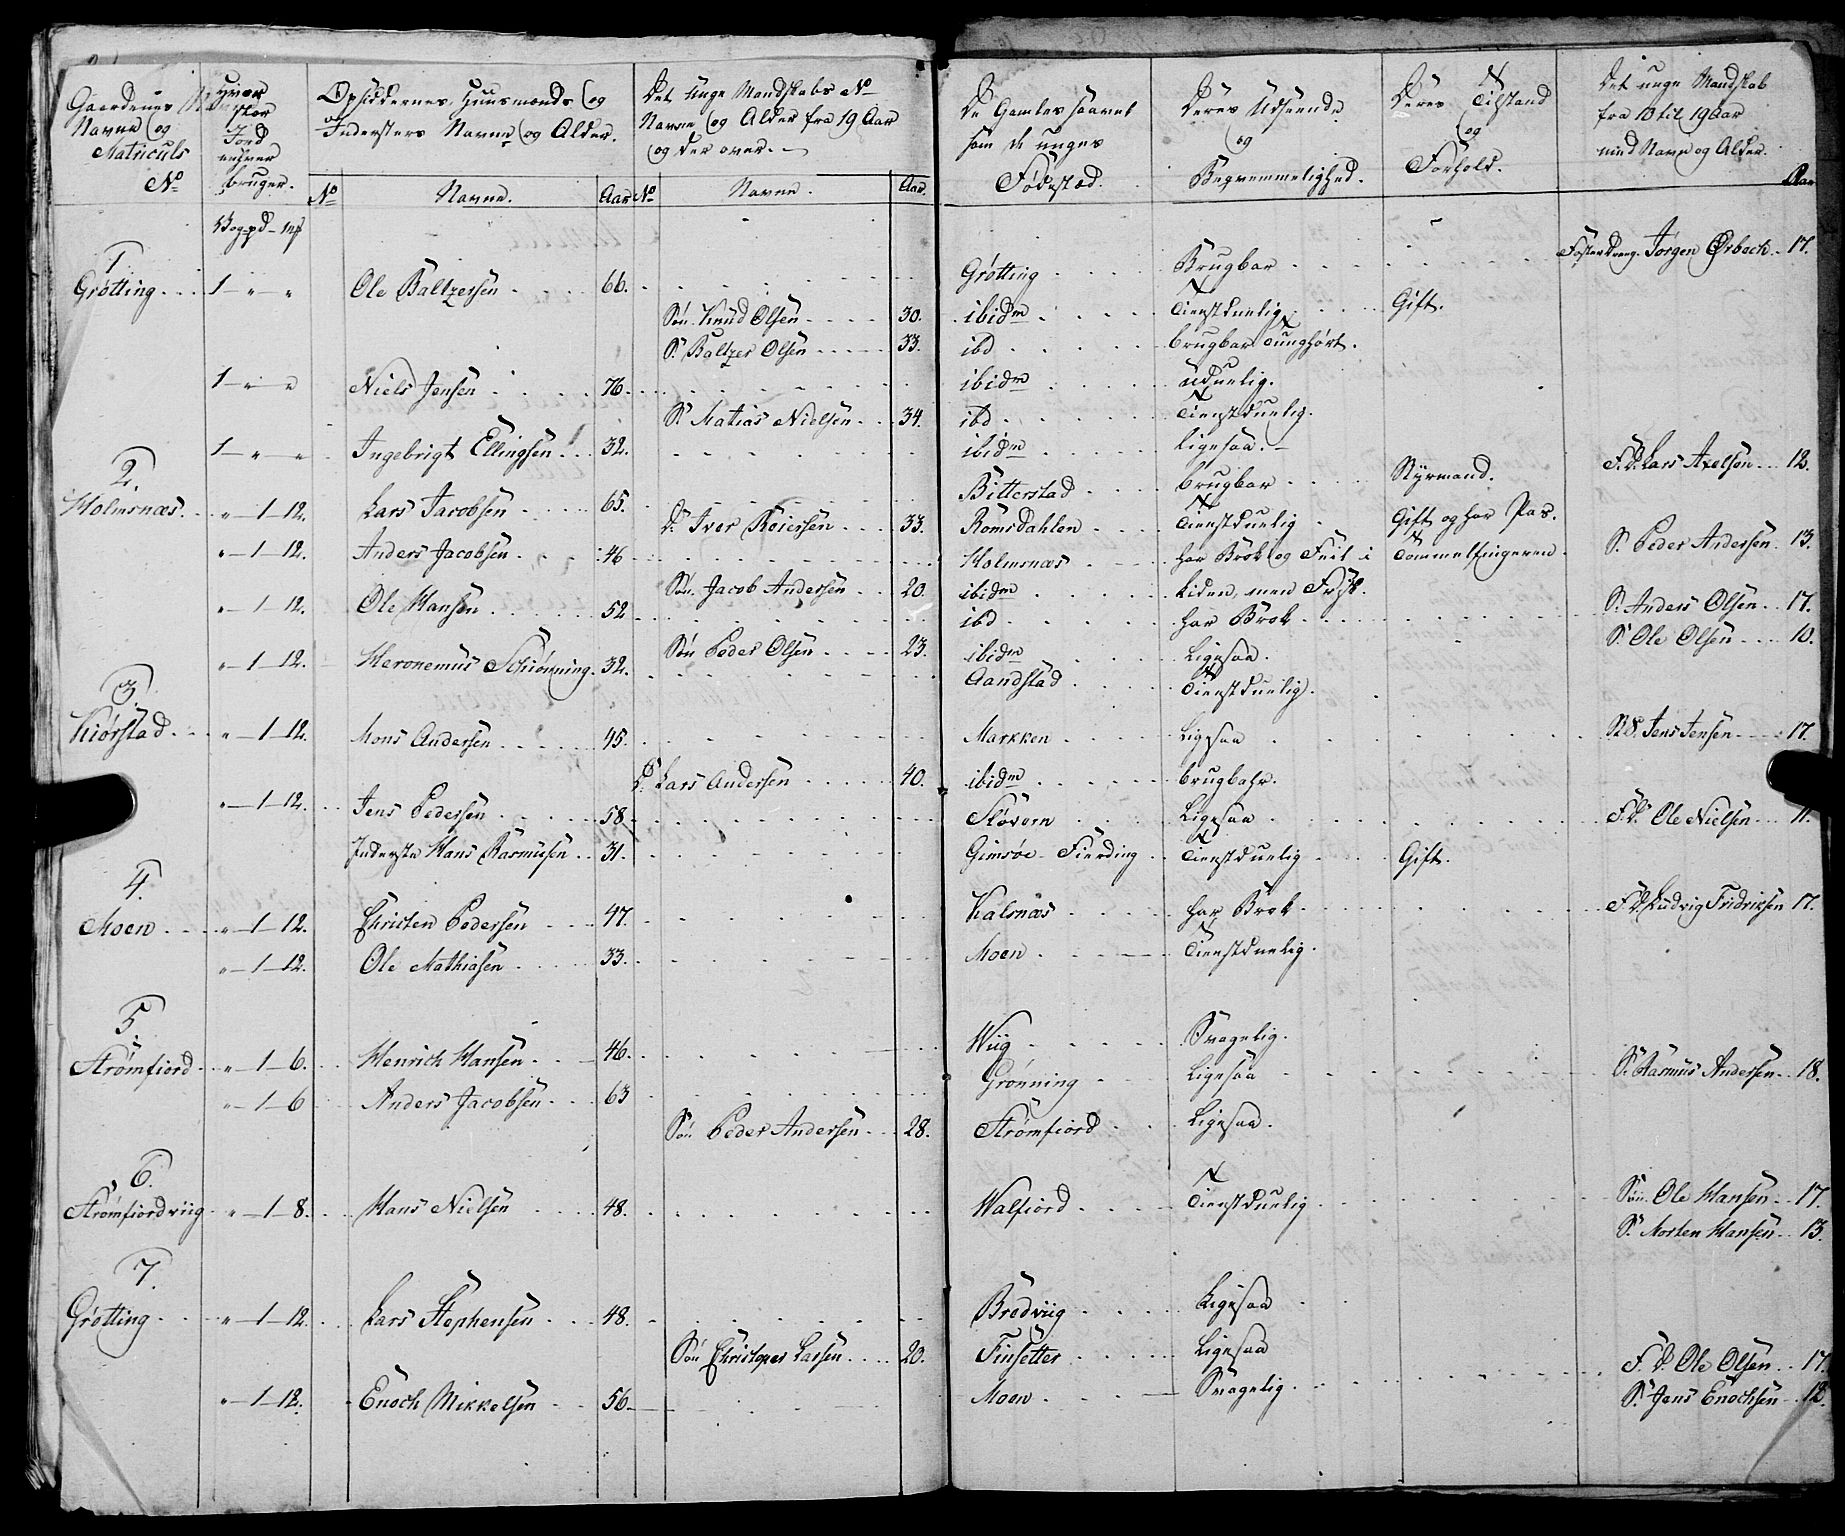 Gaardenes Navne og Matriculs No
Hvor stor Jord enhver bruger.
Opsiddernes, Huusmænds og Inderster Navne og Alder.
Det unge Mandskabs No Navne og Alder fra 19 Aar og der over.
De Gamles saavel som de unges Fødested.
Deres Udseende og Beqvemmelighed.
Deres Tilstand og Forhold.
Det unge Mandskab fra 10 til 19 Aar med Navn og Alder.
No Navne. Aar No Navne. Aar. Aar
Vog - pd - mk
Fosterdreng. Jørgen Ørbech 17.
1.
Grøtting 1 " " Ole Baltzersen 66. Grøtting Brugbar
Søn Knud Olsen 30. ibidm Tienstduelig Gift.
S. Baltzer Olsen 33. ibd brugbar Tunghørt.
1 " " Niels Jensen 76. ibidm uduelig.
S. Matias Nielsen 34. ibd Tienstduelig.
1 " " Ingebrigt Ellingsen 32. ibidm Ligesaa.
2.
Holmsnæs " 1 12. Lars Jacobsen 65. Bitterstad brugbar Styrmand. F. D. Lars Axelsen 12.
D. Iver Reiersen 33. Romsdahlen Tienstduelig Gift og har Pas.
" 1 12. Anders Jacobsen 46 Holmsnæs har Brok og Feil i Tommelfingeren S. Peder Andersen 13.
Søn Jacob Andersen 20. ibidm Liden, men Frisk.
" 1 12. Ole Hansen 52 ibd har Brok S. Anders Olsen 17.
S. Ole Olsen 10.
Søn Peder Olsen 23. ibidm Ligesaa.
" 1 12. Heronemus Schiønning 32. Aandstad Tienstduelig.
3.
Kiørstad " 1 12. Mons Andersen 45. Markken Ligesaa St. S. Jens Jensen 17.
D. Lars Andersen 40. ibidm brugbahr.
" 1 12. Jens Pedersen 58. Sløvern Ligesaa F. D. Ole Nielsen 11.
Inderste Hans Rasmusen 31. Gimsøe Fierding Tienstduelig Gift.
4.
Moen " 1 12. Christen Pedersen 47. Kalsnæs har Brok F. D. Ludvig Fridriksen 17.
" 1 12. Ole Mathiasen 33. Moen Tienstduelig.
5.
Strømfiord " 1 6. Henrich Hansen 46. Wiig Svagelig.
" 1 6 Anders Jacobsen 63 Grønning Ligesaa S. Rasmus Andersen 18.
Søn Peder Andersen 28. Strømfiord Ligesaa.
6.
Strømfiordviig " 1 8. Hans Nielsen 48. Walfiord Tienstduelig Søn Ole Hansen 17.
S. Morten Hansen 13.
7.
Grøtting " 1 12. Lars Stephensen 48. Bredviig Ligesaa
Søn Christoper Larsen 20. Finsetter Ligesaa
F. D. Ole Olsen 17
" 1 12. Enoch Mikkelsen 56 Moen Svagelig. S. Jens Enochsen 12.